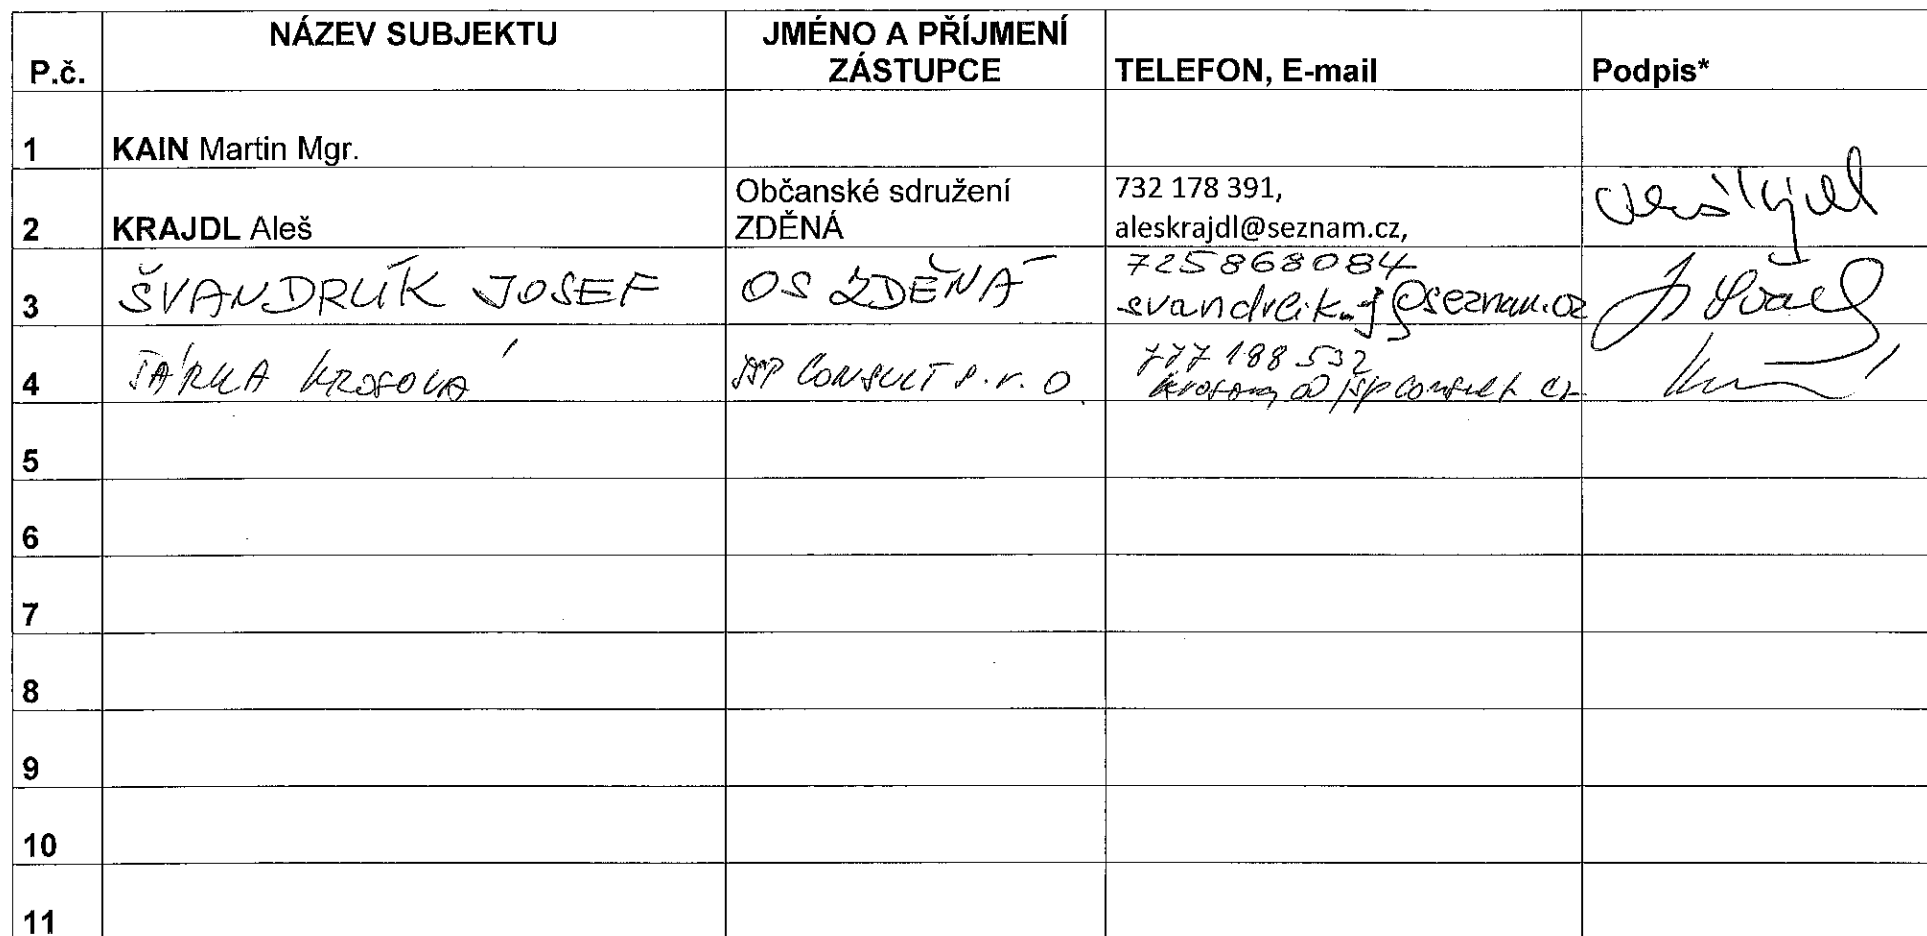 NÁZEV SUBJEKTU
JMÉNO A PŘÍJMENÍ
P.č.
ZÁSTUPCE
TELEFON, E-mail
Podpis*
1
KAIN Martin Mgr.
2
KRAJDL Aleš
Občanské sdružení
ZDĚNÁ
732 178 391,
aleskrajdl@seznam.cz,
3
ŠVANDRLÍK JOSEF
OS ZDĚNÁ
725868084
svandrlik.j@seznam.cz
4
KROSOVÁ
CONSULT s.r.o
777 188 532
5
6
7
8
9
10
11